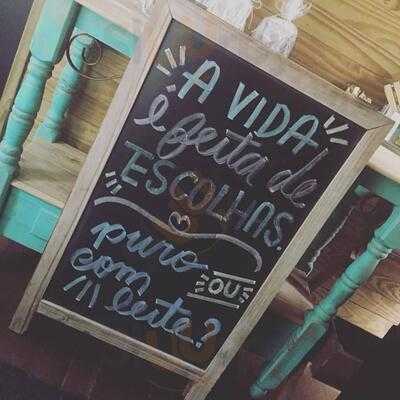 A VIDA
é feita de
ESCOLHAS.
puro OU
com leite?